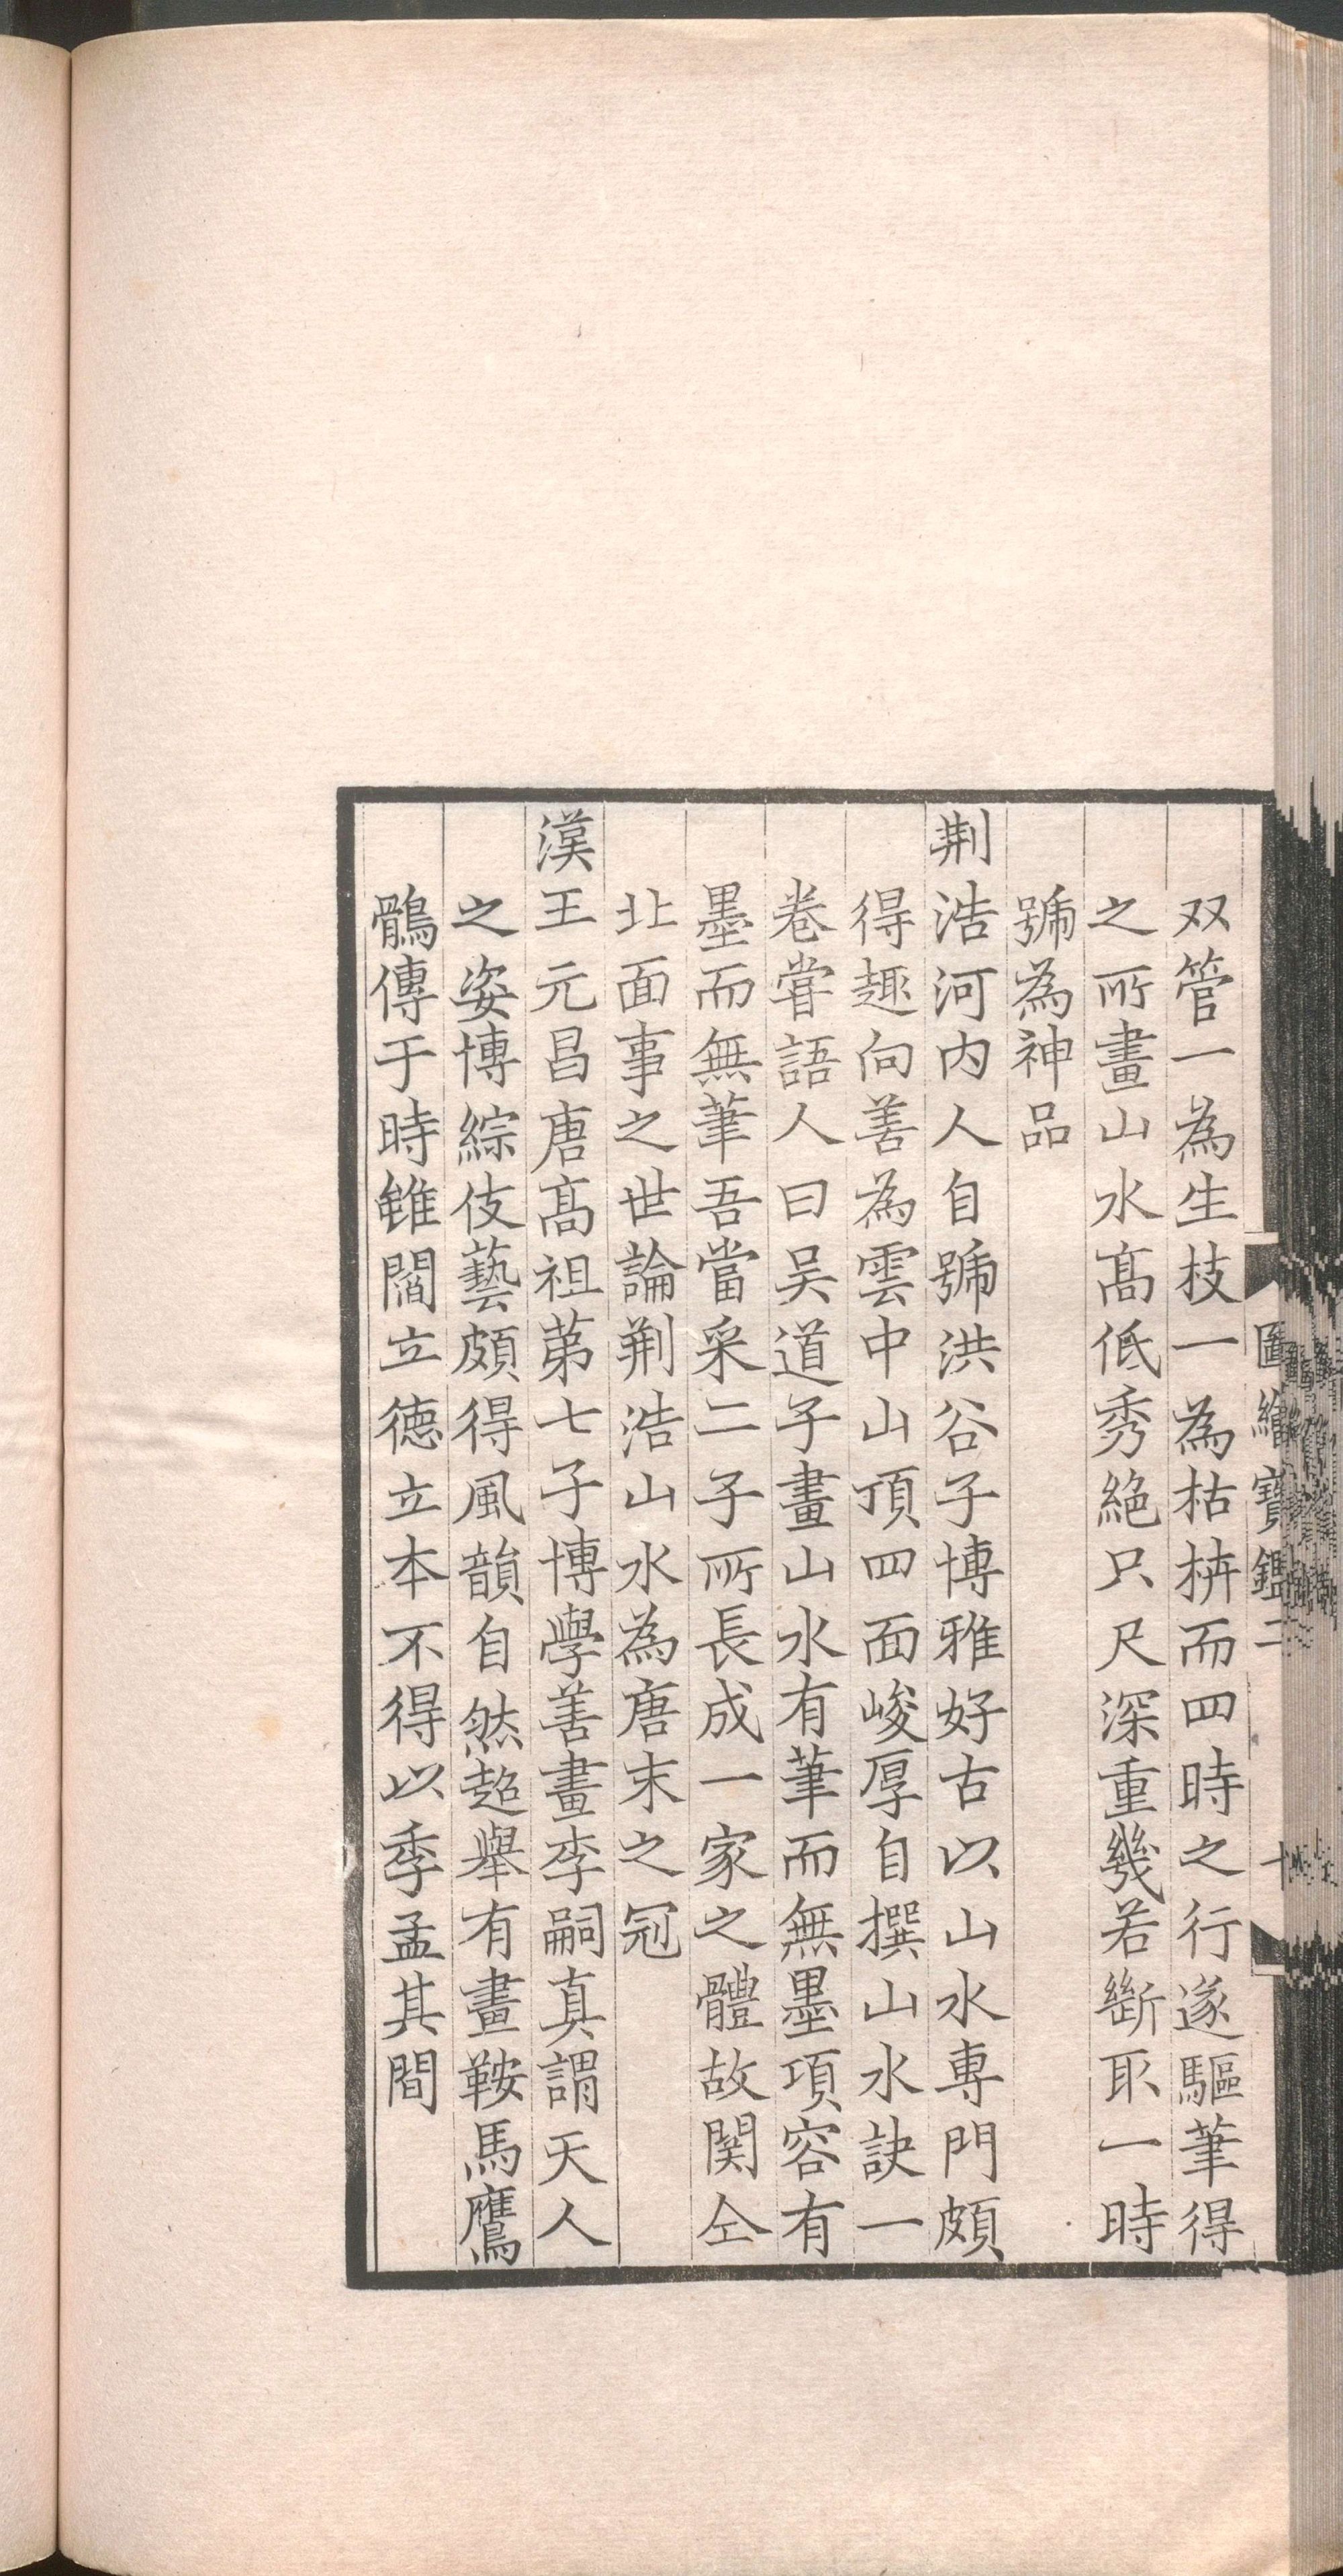 圖繪寶鑑二
十
双管一為生枝一為枯枿而四時之行遂驅筆得
之所畫山水髙低秀絶只尺深重幾若斷取一時
號為神品
荆浩河内人自號洪谷子博雅好古以山水専門頗
得趣向善為雲中山頂四面峻厚自撰山水訣一
卷甞語人曰吴道子畫山水有筆而無墨項容有
墨而無筆吾當采二子所長成一家之體故関仝
北面事之世論荆浩山水為唐末之冠
漢王元昌唐髙祖苐七子博學善畫李嗣真謂天人
之姿博綜伎藝頗得風韻自然超舉有畫鞍馬鷹
鶻傳于時雖閻立德立本不得以季孟其間